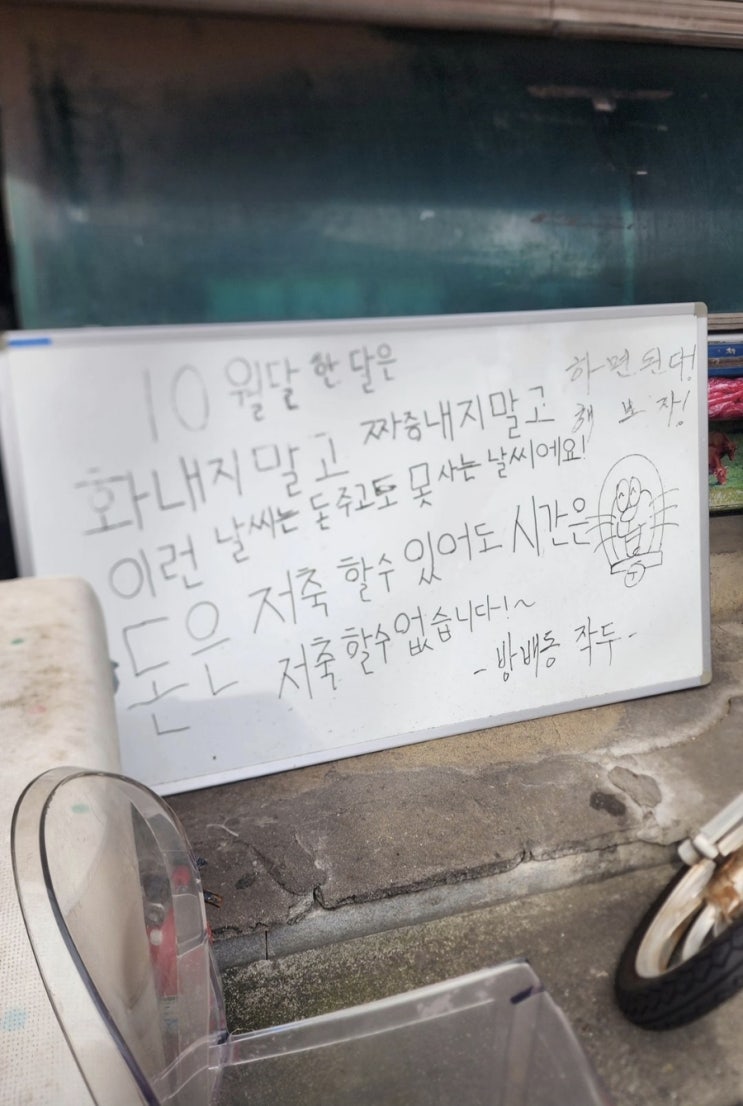 10월달 한 달은
하면된다!
해 보 자!
화내지말고 짜증내지말고
이런 날씨는 돈주고도 못사는 날씨에요!
돈은 저축 할수있어도 시간은
저축할수없습니다!~
-방배동 작두-